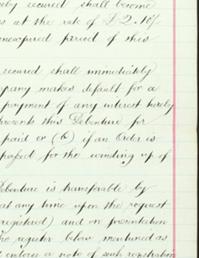 secured shall become
as at the rate of £2.10/-
unexpired period of this
secured shall immediately
pany makes default for a
payment of any interest hereby
this Debenture for
paid or (b) if an Order is
passed for the winding up of
Debenture is transferable by
at any time upon the request
registered) and on presentation
the register below mentioned as
enforce a note of such registration